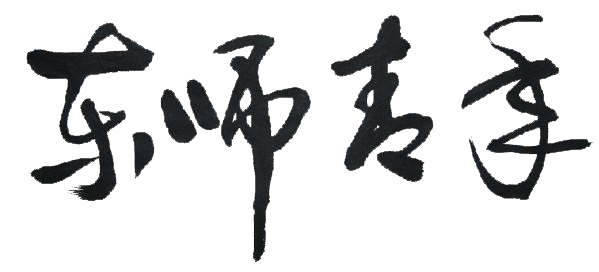 东师青年